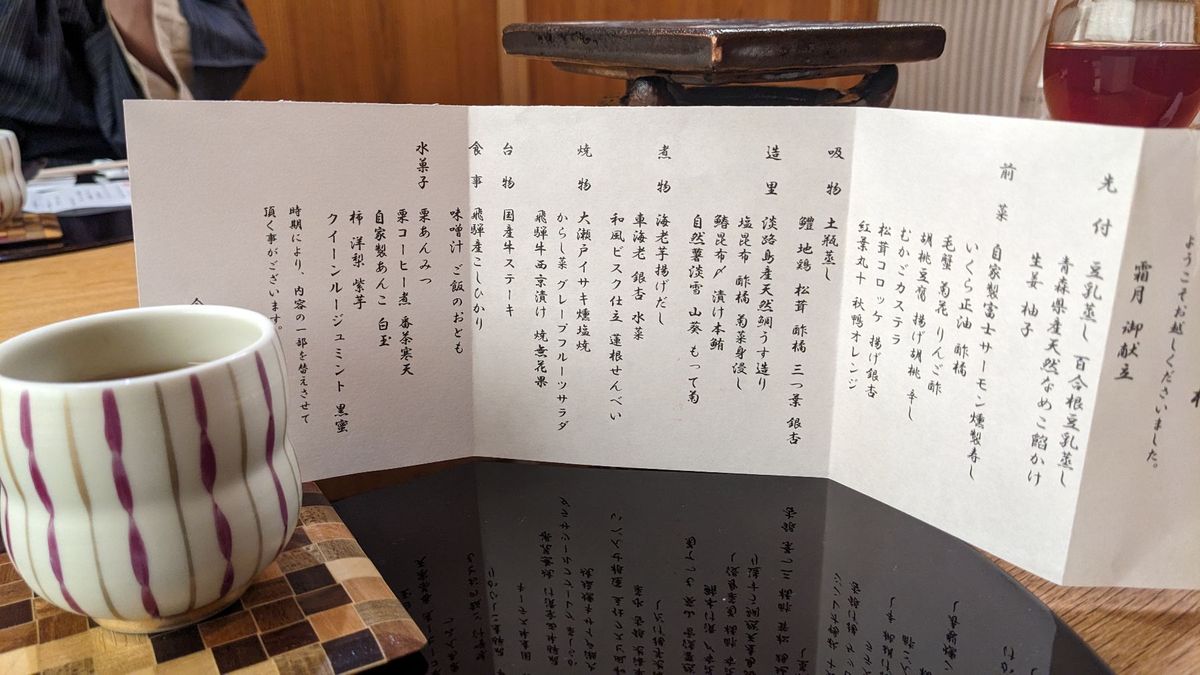 ようこそお越しくださいました。
霜月 御献立
先付 豆乳蒸し 百合根豆乳蒸し
青森県産天然なめこ餡かけ
生姜 柚子
前菜 自家製富士サーモン燻製寿し
いくら正油 酢橘
毛蟹 菊花 りんご酢
胡桃豆腐 揚げ胡桃 辛し
むかごカステラ
松茸コロッケ 揚げ銀杏
紅葉丸十 秋鴨オレンジ
吸物 土瓶蒸し
鱧 地鶏 松茸 酢橘 三つ葉 銀杏
造里 淡路島産天然鯛うす造り
塩昆布 酢橘 菊菜身浸し
鰆昆布〆 漬け本鮪
自然薯淡雪 山葵 もって菊
煮物 海老芋揚げだし
車海老 銀杏 水菜
和風ビスク仕立 蓮根せんべい
焼物 大瀬戸イサキ燻塩焼
からし菜 グレープフルーツサラダ
飛騨牛西京漬け 焼無花果
台物 国産牛ステーキ
食事 飛騨産こしひかり
味噌汁 ご飯のおとも
水菓子 栗あんみつ
栗コーヒー煮 番茶寒天
自家製あんこ 白玉
柿 洋梨 紫芋
クイーンルージュ ミント 黒蜜
時期により、内容の一部を替えさせて
頂く事がございます。